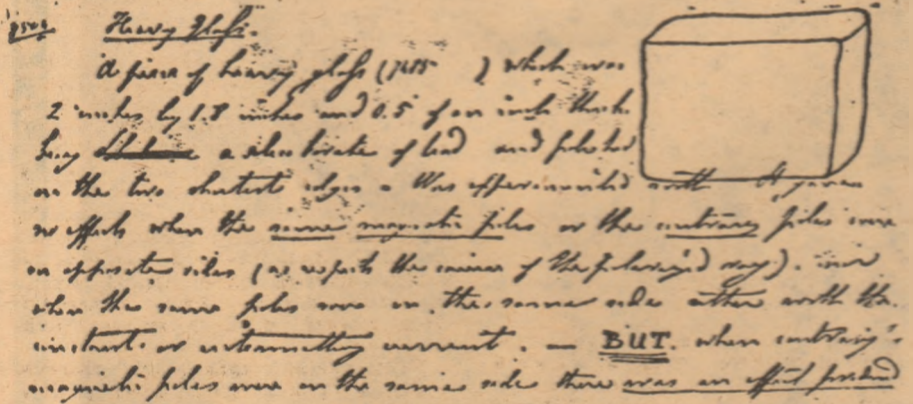 7504 Heavy Glass.
A piece of heavy glass (7485 ) which was
2 inches by 1.8 inches and 0.5 of an inch thick
being a silico borate of lead and polished
on the two shortest edges was experimented with It gave
no effects when the same magnetic poles or the contrary poles were
on opposite sides (as respects the course of the polarized ray). nor
when the same poles were on the same side either with the
constant or intermitting current. — BUT. when contrary
magnetic poles were on the same side there was an effect produced